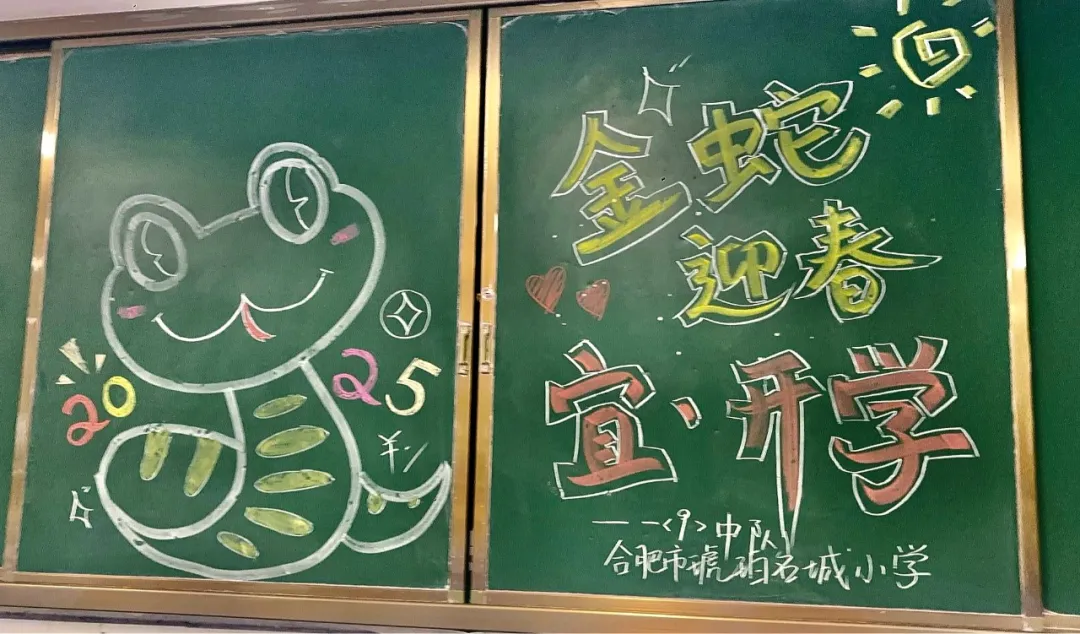 2025
金蛇
迎春
宜·开学
——一<9>中队
合肥市琥珀名城小学